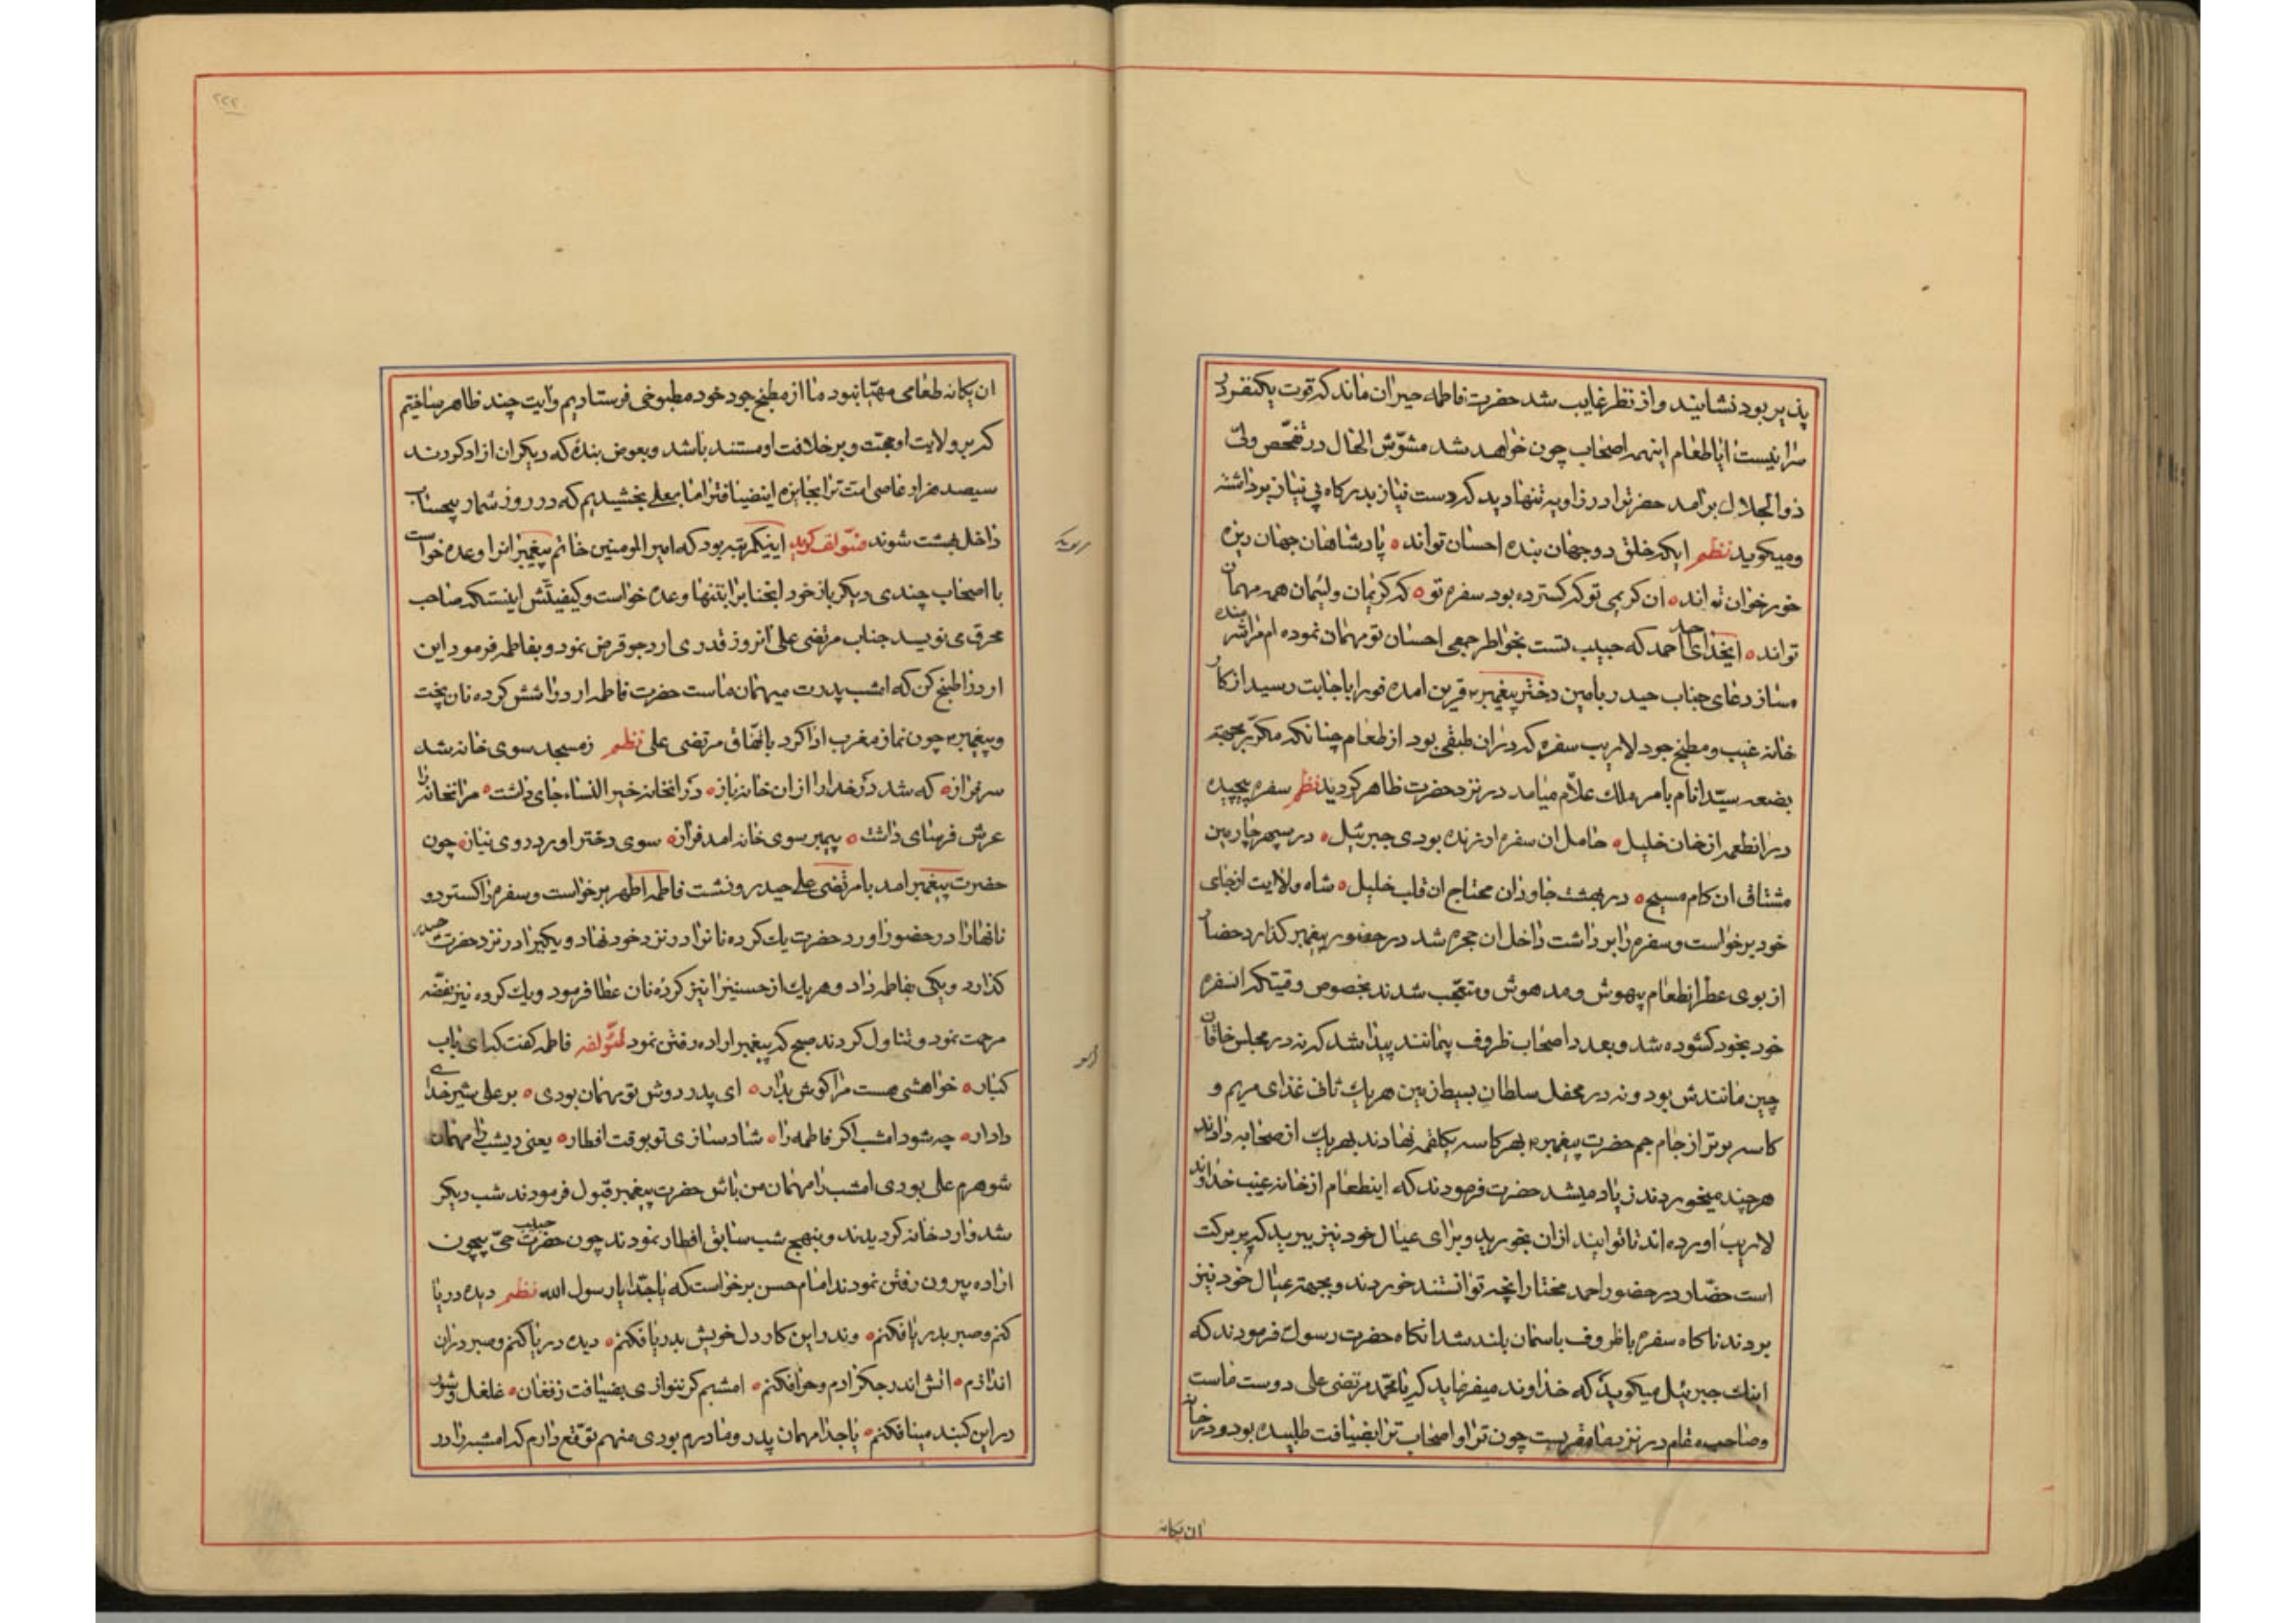 پذیر بود نشانیند و از نظر غایب شد حضرت فاطمه حیران ماند که قوت یکنفر در
سرا نیست ایا طعام اینهمه اصحاب چون خواهد شد مشوّش الحال در تفحّص ولیّ
ذوالجلال برآمد حضرتش را در زاویه تنها دید که دست نیاز بدرکاه بی نیاز برداشته
و میکوید نظم ایکه خلق دو جهان بنده احسان تواند پادشاهان جهان ریزه
خور خوان تواند ان کریمی تو که کسترده بود سفره تو که کریمان و لئیمان همه مهمان
تواند ایخدای احمد که حبیب تست بخواطر جمعی احسان تو مهمان نموده ام مرا شرمنده
مساز دعای جناب حیدر بامین دختر پیغمبر قرین امده فورا باجابت رسید از کار
خانه غیب و مطبخ جود لاریب سفره که دران طبقی بود از طعام چنانکه مکرّر بجهته
بضعه سیّد انام بامر ملك علّام میامد در نزد حضرت ظاهر کردید نظم سفره پیچیده
درانطعمه از خان خلیل حامل ان سفره ارنده بودی جبرئیل در سپهر چاریین
مشتاق ان کام مسیح در بهشت جاودان محتاج ان قلب خلیل شاه ولایت از جای
خود برخواست و سفره را برداشت داخل ان حجره شد در حضور پیغمبر کذارد حضار
از بوی عطر انطعام بیهوش و مدهوش و متعجّب شدند بخصوص وقیتکه انسفره
خود بخود کشوده شد و بعدد اصحاب ظروف بیمانند پیدا شد که نه در مجلس خاقان
چین مانندش بود و نه در محفل سلطان بسیط زمین هریك ثانی غذای مریم و
کاسه برتر از جام جم حضرت پیغمبر بهر کاسه یکلقمه نهادند بهریك از صحابه دادند
هرچند میخوردند زیاد میشد حضرت فرمودند که اینطعام از خانه غیب خداوند
لاریب اورده اند تا توانیند ازان بخورید و برای عیال خود نیز ببرید که پر برکت
است حضّار در حضور احمد مختار انچه توانستند خوردند و بجهته عیال خود نیز
بردند ناکاه سفره با ظروف باسمان بلند شد انکاه حضرت رسول فرمودند که
اینك جبرئیل میکوید که خداوند میفرماید که یا محمّد مرتضی علی دوست ماست
و صاحب مقام در نزد ما مقرّبست چون ترا و اصحاب ترا بضیافت طلبیده بود و در خان
ان یکانه
ان یکانه طعامی مهیّا نبود ما از مطبخ جود خود مطبوخی فرستادیم و ایت چند ظاهر ساختیم
که بر ولایت او حجّت و بر خلافت او مستند باشد و بعوض بندۀ که دیکران ازاد کردند
سیصد هزار عاصی امّت ترا بجایزه اینضیافت ترا ما بعلی بخشیدیم که در روز شمار بیحساب
داخل بهشت شوند مؤلف کوید اینیکمرتبه بود که امیر المومنین خاتم پیغمبرانرا وعده خواست
با اصحاب چندی دیکر باز خود انجنابرا بتنها وعده خواست و کیفیتش اینستکه صاحب
محرق می نویسد جناب مرتضی علی انروز قدری ارد جو قرض نمود و بفاطمه فرمود این
ارد را طبخ کن که امشب پدرت میهمان ماست حضرت فاطمه ارد را شش کرده نان پخت
و پیغمبر چون نماز مغرب ادا کرد باتّفاق مرتضی علی نظم ز مسجد سوی خانه شد
سرفراز که شد در خدا را ازان خانه باز در انخانه خیر النساء جای داشت مر انخانه را
عرش فرسای داشت پیمبر سوی خانه امد فراز سوی دختر اورد روی نیاز چون
حضرت پیغمبر امد با مرتضی علی حیدر و نشت فاطمه اطهر برخواست و سفره را کسترد و
نانها را در حضور اورد حضرت یك کرده نانرا در نزد خود نهاد و یکیرا در نزد حضرت حیدر
کذارد و یکی بفاطمه داد و هریك از حسنین را نیز کردۀ نان عطا فرمود و یك کرده نیز بفضّه
مرحمت نمود و تناول کردند صبح که پیغمبر اراده رفتن نمود لمؤلفه فاطمه کفت که ای باب
کبار خواهشی هست مرا کوش بدار ای پدر دوش تو مهمان بودی بر علی شیر خدای
دادار چه شود امشب اکر فاطمه را شاد سازی تو بوقت افطار یعنی دیشب را مهمان
شوهرم علی بودی امشب را مهمان من باش حضرت پیغمبر قبول فرمودند شب دیکر
شد وارد خانه کردیدند و بنهج شب سابق افطار نمودند چون حضرت حبیب حیّ بیچون
اراده بیرون رفتن نمودند امام حسن برخواست که یا جدّا یا رسول الله نظم دیده دریا
کنم و صبر بدریا فکنم وندر این کار دل خویش بدریا فکنم دیده دریا کنم و صبر دران
اندازم اتش اندر جکر ادم و حوا فکنم امشبم کر ننوازی بضیافت ز فغان غلغل و شور
در این کنبد مینا فکنم یا جدا مهمان پدر و مادرم بودی منهم توقّع دارم که امشب را در